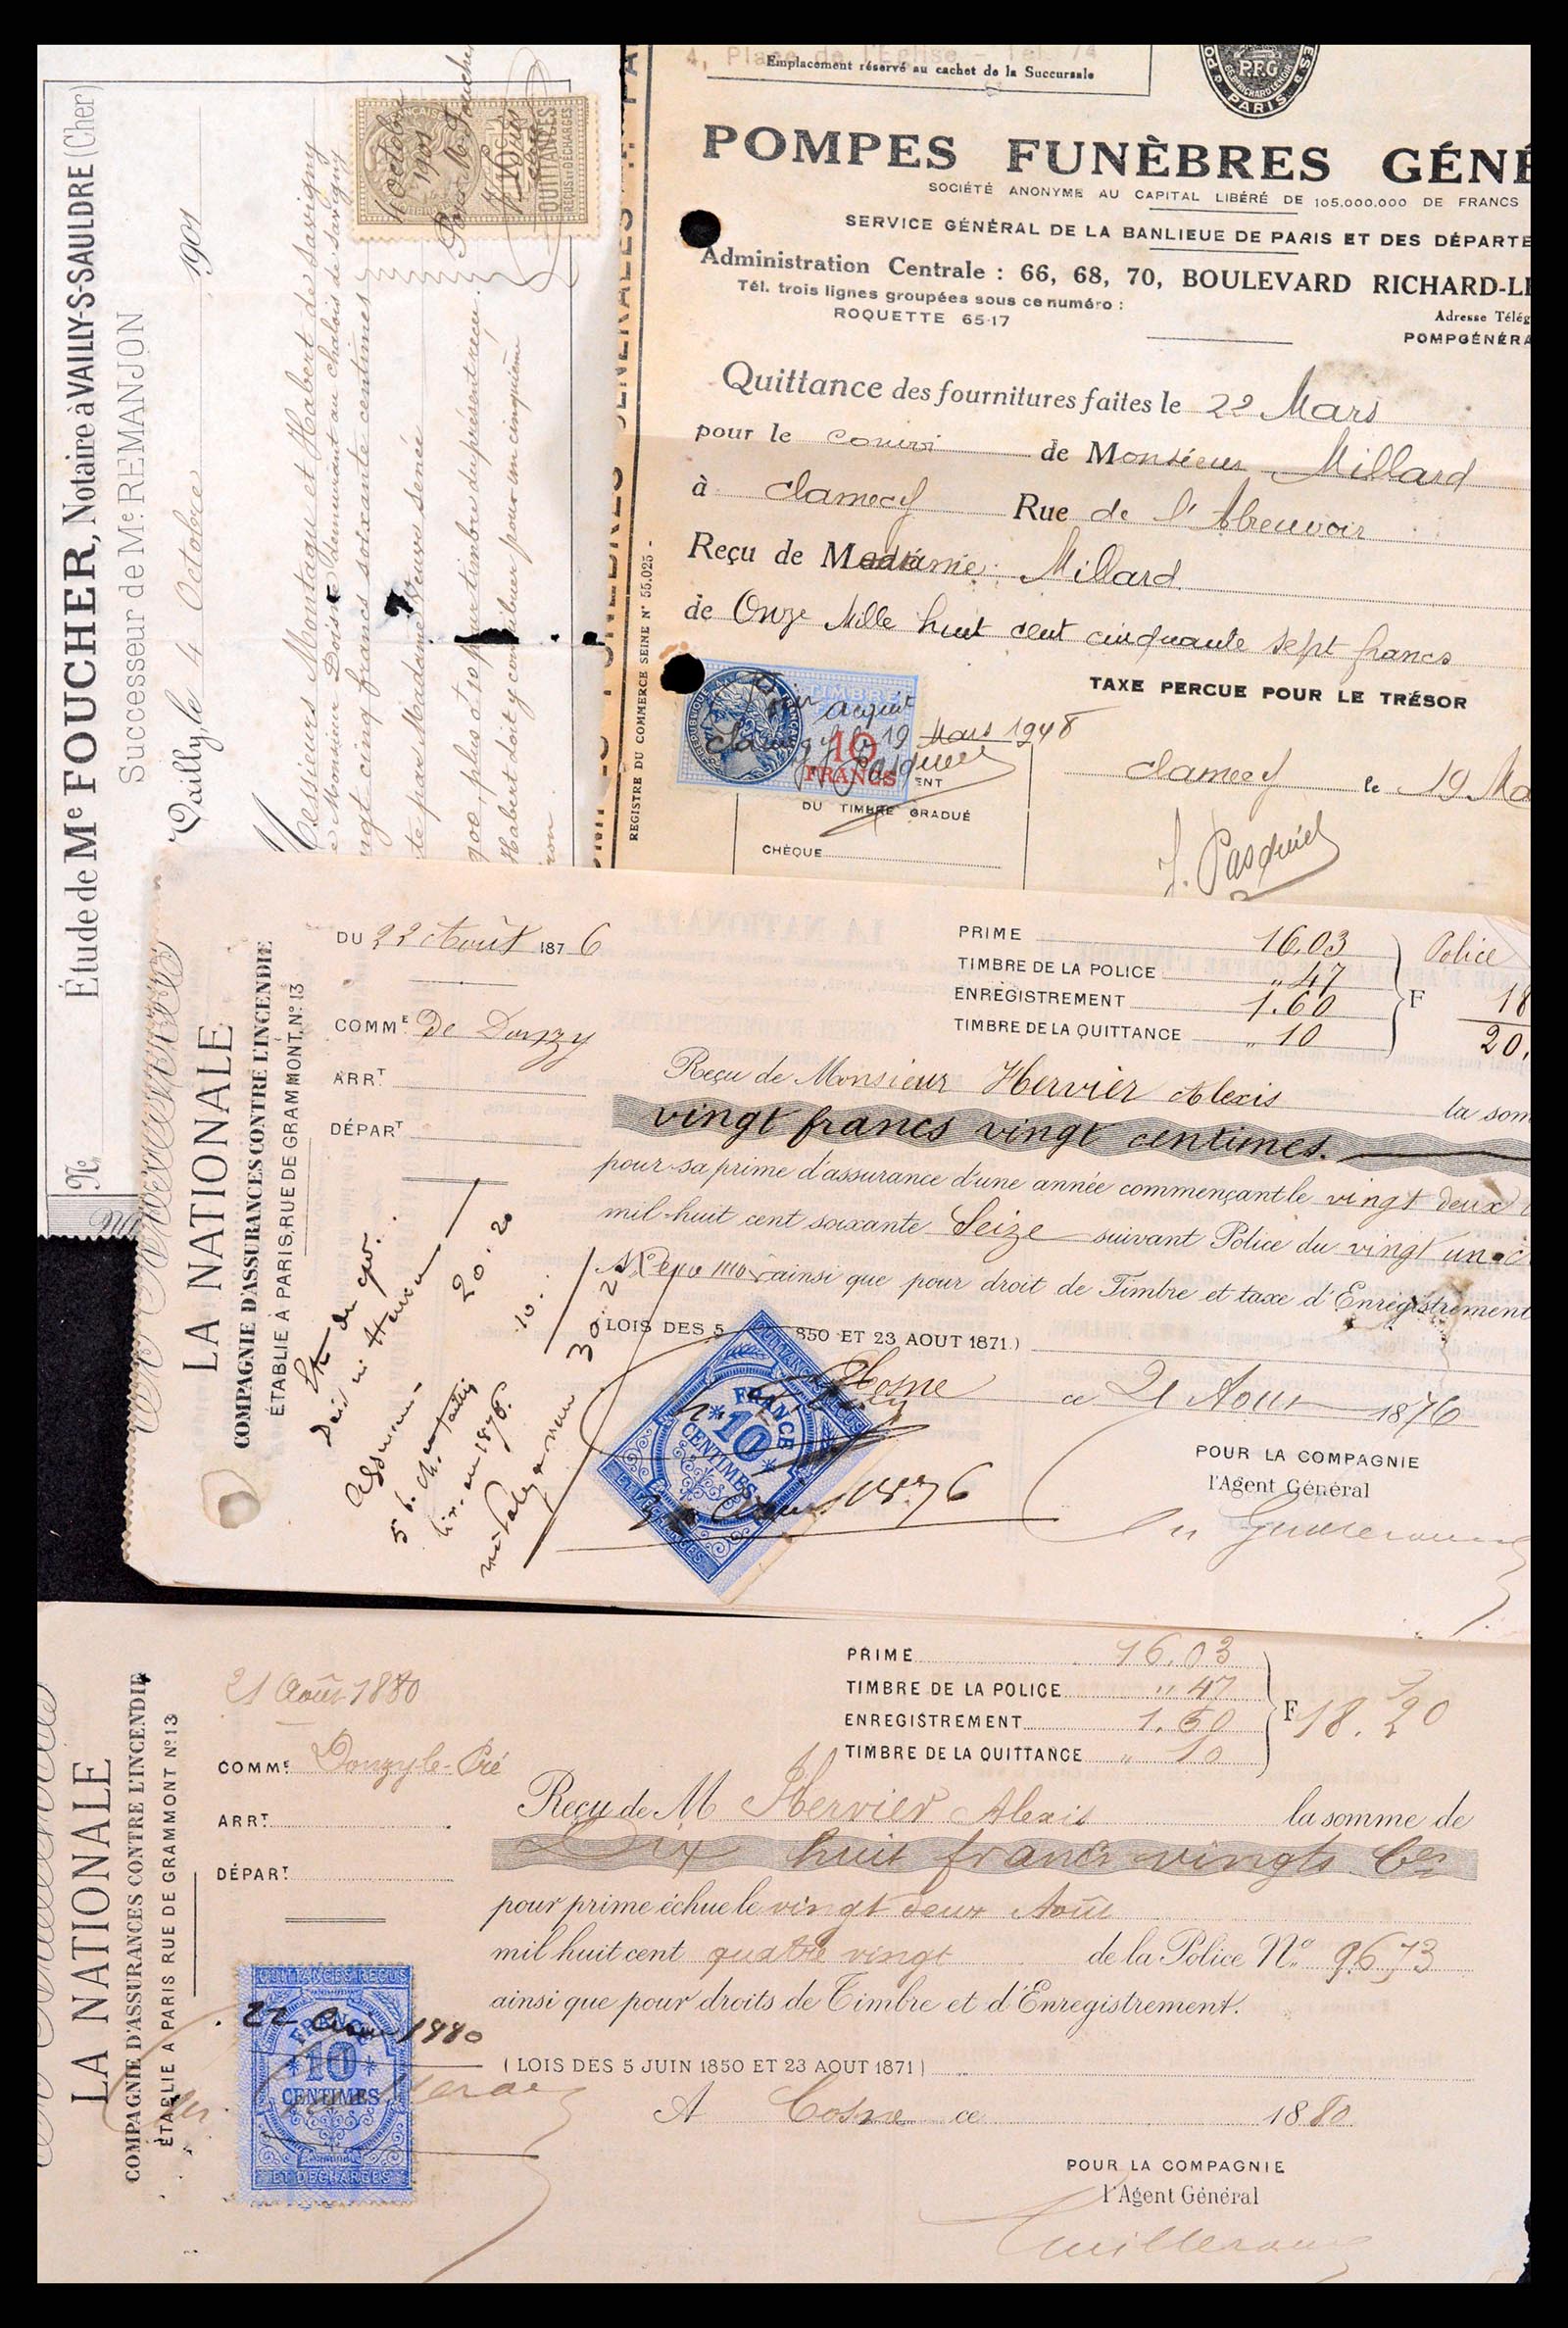 Étude de Me FOUCHER, Notaire à VAILLY-S-SAULDRE (Cher)
Successeur de Me. REMANJON
Vailly, le 4 Octobre 1901
Messieurs Montagu et Habert de Savigny
Monsieur Dois demeurant au chalois de Savigny
vingt cinq francs soixante centimes
te par Madame Veuve Senée
900, plus 0 f 10 pour timbre du présent reçu.
Habert doit y contribuer pour un cinquième
No.
4 octobre
1901
QUITTANCES
REÇUS ET DÉCHARGES
4, Place de l'Eglise - Tél. 74
Emplacement réservé au cachet de la Succursale
P.F.G
Bd RICHARD LENOIR
PARIS
POMPES FUNÈBRES GÉNÉ
SOCIÉTÉ ANONYME AU CAPITAL LIBÉRÉ DE 105.000.000 DE FRANCS
SERVICE GÉNÉRAL DE LA BANLIEUE DE PARIS ET DES DÉPARTE
Administration Centrale : 66, 68, 70, BOULEVARD RICHARD-LE
Tél. trois lignes groupées sous ce numéro :
ROQUETTE 65-17
Adresse Télég
POMPGÉNÉRA
Quittance des fournitures faites le 22 Mars
pour le convoi de Monsieur Millard
à Clamecy Rue de l'Abreuvoir
Reçu de Madame Millard
de Onze Mille huit cent cinquante sept francs
TAXE PERCUE POUR LE TRÉSOR
REGISTRE DU COMMERCE SEINE N° 55.025 -
TIMBRE
RÉPUBLIQUE FRANÇAISE
10
FRANCS
Clamecy le 19 Mars 1948
Pasquier
DU TIMBRE GRADUÉ
CHÈQUE
Clamecy le 19 Ma
J. Pasquier
LA NATIONALE
COMPAGNIE D'ASSURANCES CONTRE L'INCENDIE
ÉTABLIE À PARIS, RUE DE GRAMMONT, N° 13
DU 22 Août 1876
COMME. de Donzy
ARRT.
DÉPART
PRIME 16.03
TIMBRE DE LA POLICE " 47
ENREGISTREMENT 1.60
TIMBRE DE LA QUITTANCE " 10
F
Police
18
20.
Reçu de Monsieur Hervier Alexis la som
vingt francs vingt centimes.
pour sa prime d'assurance d'une année commençant le vingt deux
mil-huit cent soixante Seize suivant Police du vingt un
ainsi que pour droit de Timbre et taxe d'Enregistrement
(LOIS DES 5 850 ET 23 AOUT 1871.)
20.20
10.
30.2
QUITTANCES REÇUS
FRANCE
10
CENTIMES
ET DÉCHARGES
Cosne ce 21 Aout 1876
POUR LA COMPAGNIE
l'Agent Général
LA NATIONALE
COMPAGNIE D'ASSURANCES CONTRE L'INCENDIE
ÉTABLIE A PARIS RUE DE GRAMMONT N° 13
21 Août 1880
COMME. Donzy-le-Pré
ARRT.
DÉPART
PRIME 16.03
TIMBRE DE LA POLICE " 47
ENREGISTREMENT 1.60
TIMBRE DE LA QUITTANCE " 10
F 18.20
Reçu de M Hervier Alexis la somme de
Dix huit francs vingts Ces
pour prime échue le vingt deux Août
mil huit cent quatre vingt de la Police No. 9673
ainsi que pour droits de Timbre et d'Enregistrement.
(LOIS DES 5 JUIN 1850 ET 23 AOUT 1871)
QUITTANCES REÇUS
FRANCE
10
CENTIMES
ET DÉCHARGES
22 Aout 1880
A Cosne ce 1880
POUR LA COMPAGNIE
l'Agent Général